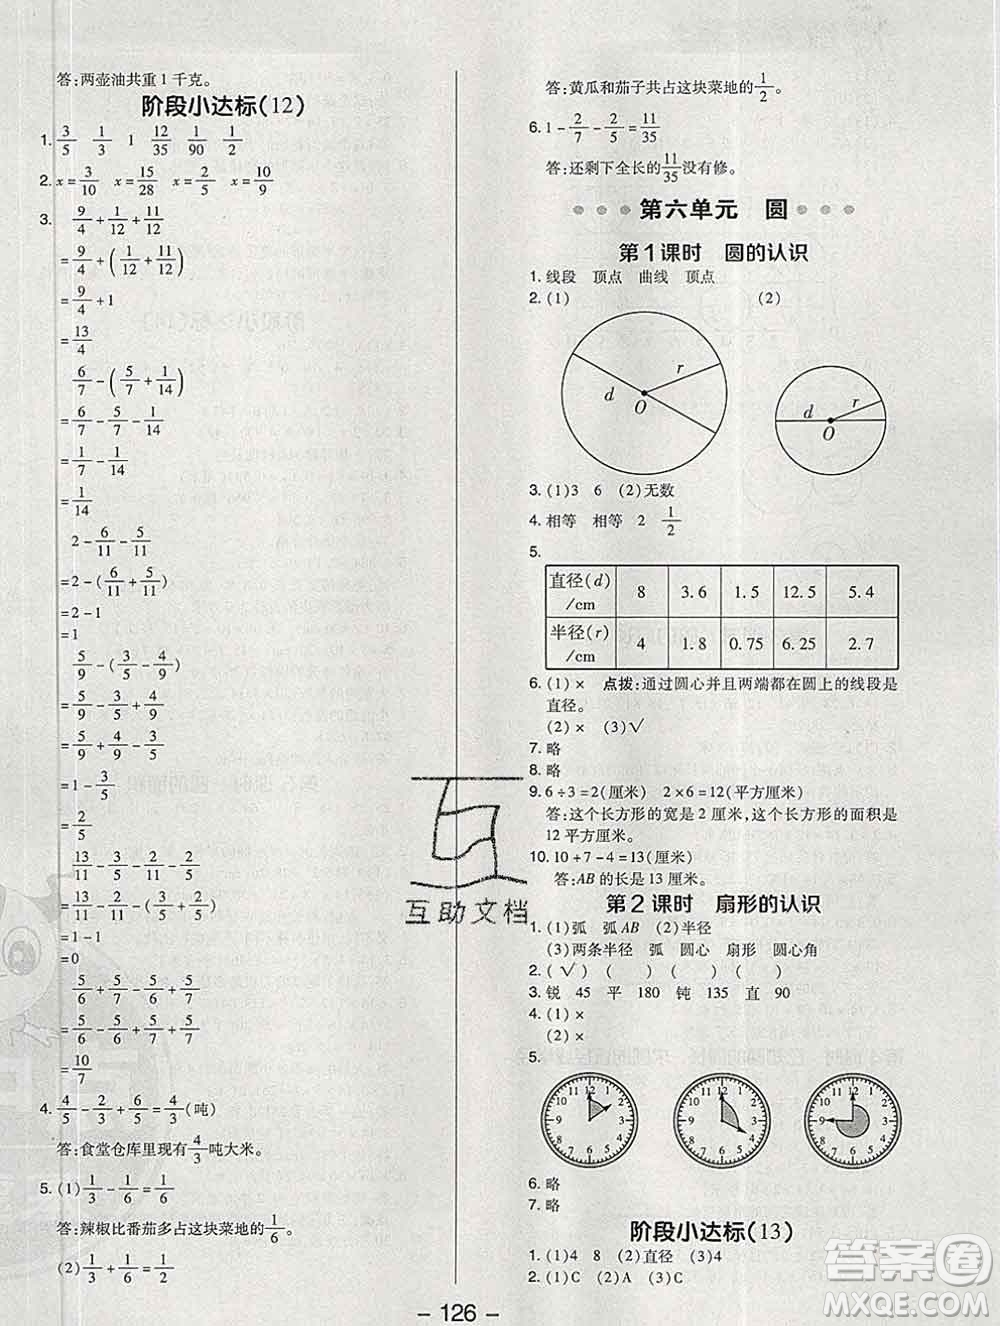 答:两壶油共重 1 千克。
阶段小达标(12)
1. 3/5 1/3 1 12/35 1/90 1/2
2. x=3/10 x=15/28 x=2/5 x=10/9
3. 9/4+1/12+11/12
=9/4+(1/12+11/12)
=9/4+1
=13/4
6/7-(5/7+1/14)
=6/7-5/7-1/14
=1/7-1/14
=1/14
2-6/11-5/11
=2-(6/11+5/11)
=2-1
=1
5/9-(3/5-4/9)
=5/9-3/5+4/9
=5/9+4/9-3/5
=1-3/5
=2/5
13/11-1/2-2/11-1/2
=13/11-2/11-(1/2+1/2)
=1-1
=0
5/6+5/7-5/6+5/7
=5/6-5/6+5/7+5/7
=10/7
4. 4/5-2/3+6/5=4/3(吨)
答:食堂仓库里现有4/3吨大米。
5. (1)1/3-1/6=1/6
答:辣椒比番茄多占这块菜地的1/6。
(2)1/3+1/6=1/2
答:黄瓜和茄子共占这块菜地的1/2。
6. 1-2/7-2/5=11/35
答:还剩下全长的11/35没有修。
第六单元 圆
第 1 课时 圆的认识
1. 线段 顶点 曲线 顶点
2. (1) (2)
d r O
d r O
3. (1)3 6 (2)无数
4. 相等 相等 2 1/2
5.
直径(d)/cm 8 3.6 1.5 12.5 5.4
半径(r)/cm 4 1.8 0.75 6.25 2.7
6. (1)× 点拨:通过圆心并且两端都在圆上的线段是
直径。
(2)× (3)√
7. 略
8. 略
9. 6÷3=2(厘米) 2×6=12(平方厘米)
答:这个长方形的宽是 2 厘米,这个长方形的面积是
12 平方厘米。
10. 10+7-4=13(厘米)
答:AB 的长是 13 厘米。
第 2 课时 扇形的认识
1. (1)弧 弧 AB (2)半径
(3)两条半径 弧 圆心 扇形 圆心角
2. (√) ( ) ( ) ( )
3. 锐 45 平 180 钝 135 直 90
4. (1)×
(2)×
5.
11 12 1 10 2 9 3 8 4 7 6 5
11 12 1 10 2 9 3 8 4 7 6 5
11 12 1 10 2 9 3 8 4 7 6 5
6. 略
7. 略
阶段小达标(13)
1. (1)4 8 (2)直径 (3)4
2. (1)C (2)A (3)C
- 126 -
互助文档
答案圈
MXQE.COM